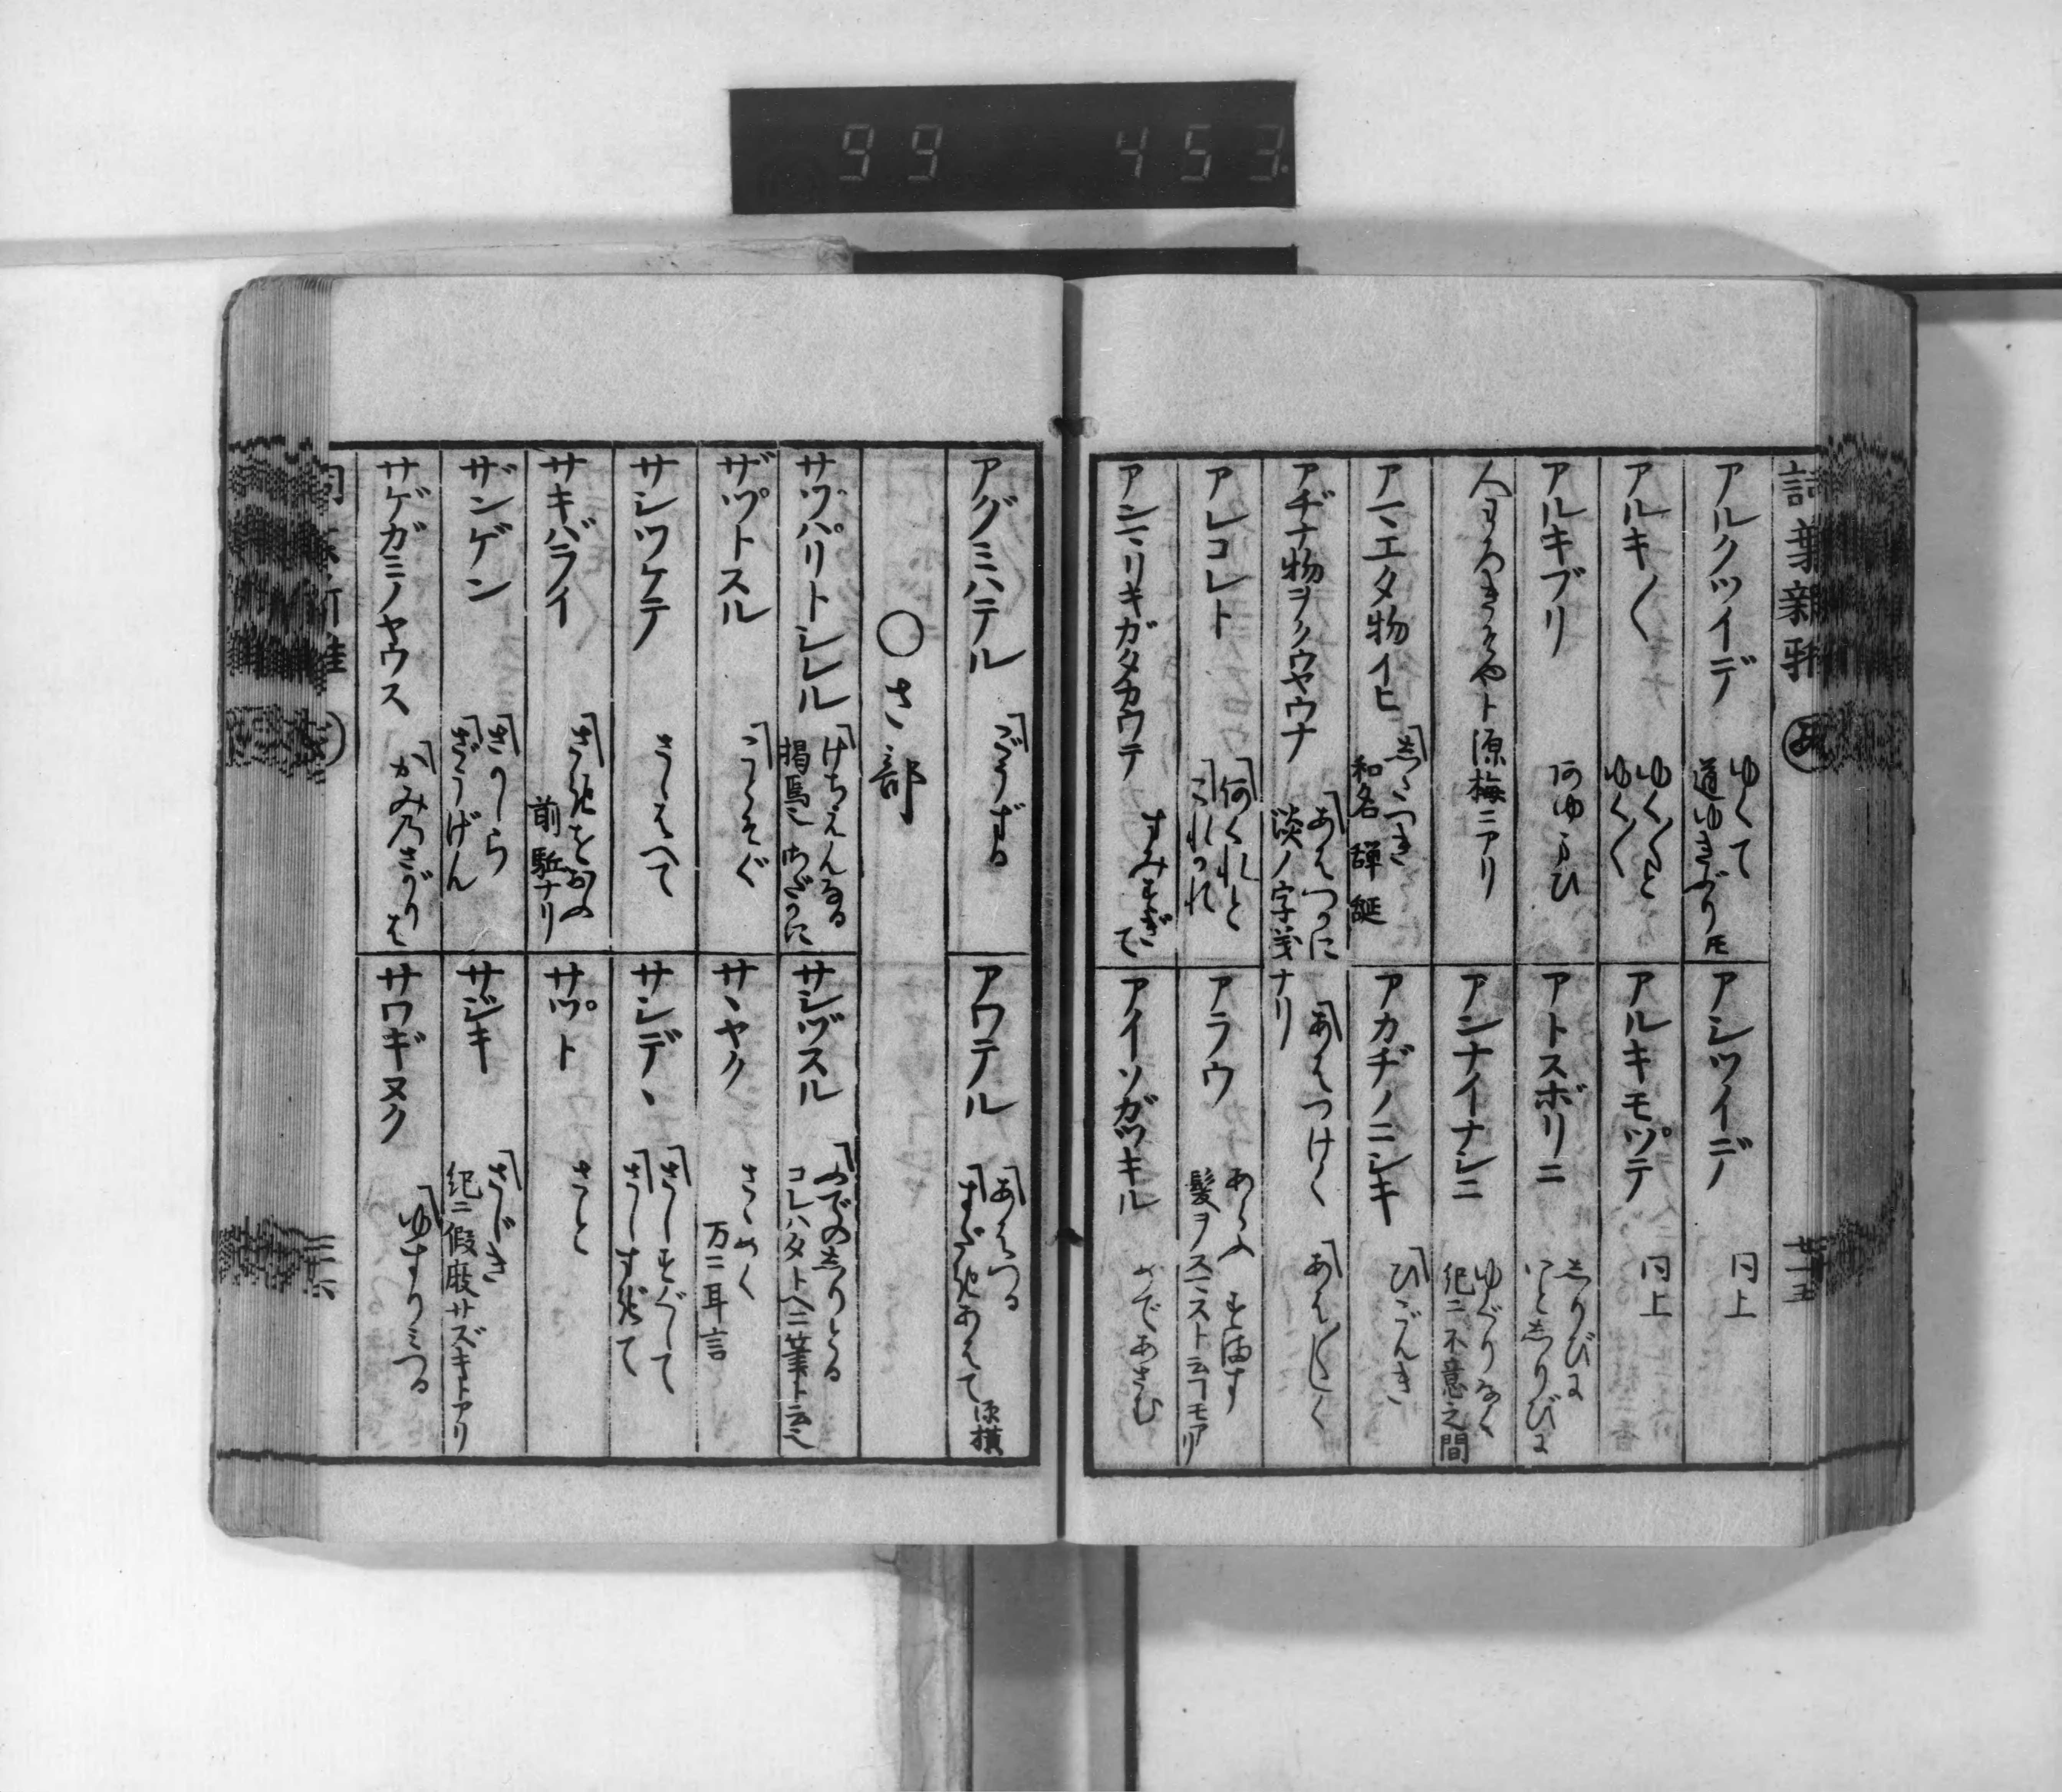 99 453
詞葉新雅 あ 廿五
アルクツイデ ゆくて
道ゆきぶり 圧
アシツイデ 同上
アルキ〱 ゆく〱と
ゆく〱
アルキモツテ 同上
アルキブリ
アトスボリニ しりびに
いとしりびに
人わろきをやト源梅ニアリ
アンナイナシニ ゆくりなく
紀ニ不意之間
アマエタ物イヒ したつき
和名
アカヂノニシキ ひごんき
アヂナ物ヲクウヤウナ あはつかに
淡ノ字義ナリ
あはつけく
あは〱しく
アレコレト 何くれと
これかれ
アラウ あらふ すます
髪ヲスマストモ云フモアリ
アンマリキガタカウテ すみすぎて
アイソガツキル めであさむ
アグミハテル ごうずる
アワテル あはつる
源横
〇さ部
サツパリトシレル けちえんなる
掲焉也 あざらに
サシヅスル ふでのしりとる
コレハタトヘニ筆ト云也
ザツトスル ことそぐ
サヽヤク さゝめく
万ニ耳言
サシツケテ さしはへて
サシデヽ さしすぐして
さしすぎて
サキバライ さきをおふ
前駈ナリ
サツト さと
ザンゲン さかしら
ざうげん
サジキ さじき
紀ニ假庪サズキトアリ
サゲガミノヤウス かみのさがりば
サワギヌク ゆすりみつる